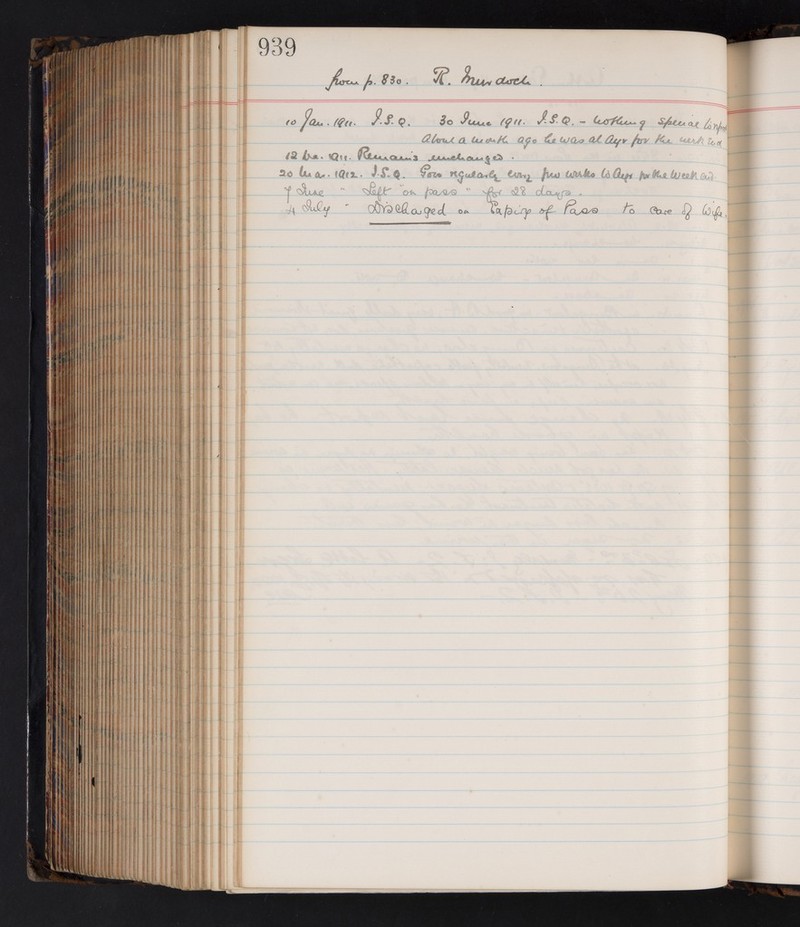 939
from p. 830. R. Murdoch.
10 Jan. 1911. I.S.Q. 30 June 1911. I.S.Q. - nothing special to
About a month ago he was at Ayr for the week end
12 Dec. 1911. Remains unchanged.
20 Mar. 1912. I.S.Q. Goes regularly every few weeks to Ayr for the Week end.
7 June " Left "on pass" for 28 days.
4 July " Discharged on Expiry of Pass to care of Wife.